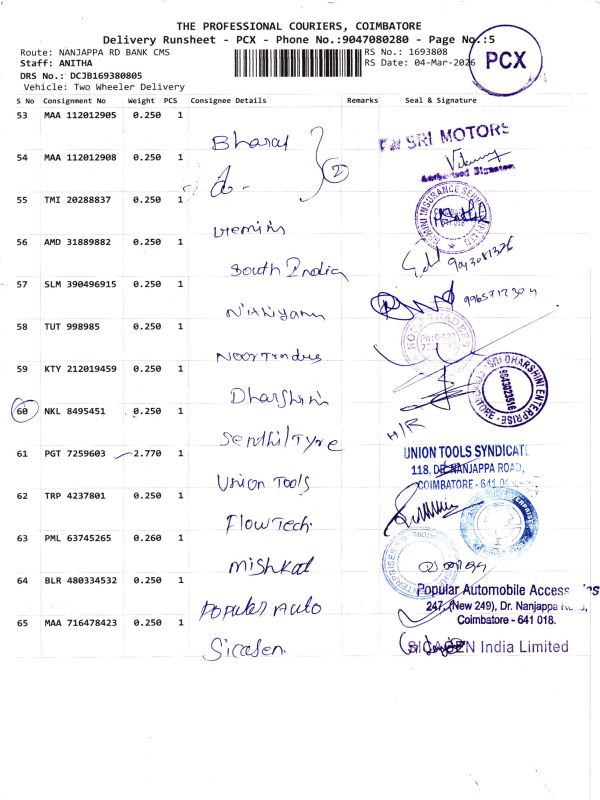 THE PROFESSIONAL COURIERS, COIMBATORE
Delivery Runsheet - PCX - Phone No.:9047080280 - Page No.:5
Route: NANJAPPA RD BANK CMS
RS No.: 1693808
Staff: ANITHA
RS Date: 04-Mar-2026
PCX
DRS No.: DCJB169380805
Vehicle: Two Wheeler Delivery
S No Consignment No Weight PCS Consignee Details Remarks Seal & Signature
53 MAA 112012905 0.250 1 Bharat SRI MOTORS
54 MAA 112012908 0.250 1 do- 2 Authorised Signatory
55 TMI 20288837 0.250 1 Gemini
56 AMD 31889882 0.250 1 South India
57 SLM 390496915 0.250 1 Nithiyam
58 TUT 998985 0.250 1 Noor Traders
59 KTY 212019459 0.250 1 Dharshini SRI DHARSHINI ENTERPRISE COIMBATORE
60 NKL 8495451 0.250 1 Senthil Tyre H/R
61 PGT 7259603 2.770 1 Union Tools UNION TOOLS SYNDICATE
118, DR. NANJAPPA ROAD,
COIMBATORE - 641 018.
62 TRP 4237801 0.250 1 FlowTech
63 PML 63745265 0.260 1 Mishkat
64 BLR 480334532 0.250 1 Popular Auto Popular Automobile Accessories
247, (New 249), Dr. Nanjappa Road,
Coimbatore - 641 018.
65 MAA 716478423 0.250 1 Sicagen SICAGEN India Limited